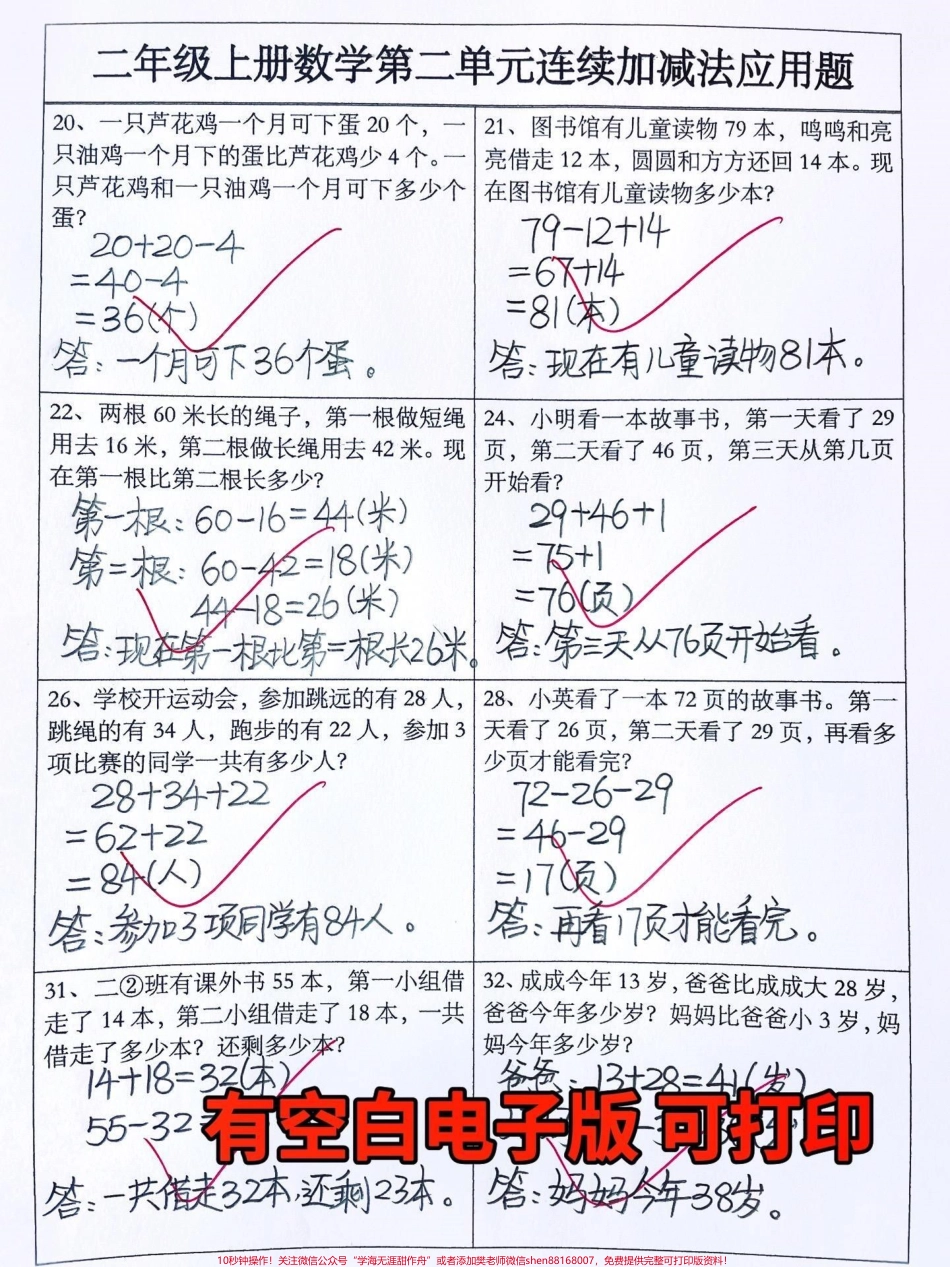 二年级上册数学第二单元连续加减法应用题
20、一只芦花鸡一个月可下蛋 20 个，一
只油鸡一个月下的蛋比芦花鸡少 4 个。一
只芦花鸡和一只油鸡一个月可下多少个
蛋？
20+20-4
=40-4
=36(个)
答：一个月可下36个蛋。
21、图书馆有儿童读物 79 本，鸣鸣和亮
亮借走 12 本，圆圆和方方还回 14 本。现
在图书馆有儿童读物多少本？
79-12+14
=67+14
=81(本)
答：现在有儿童读物81本。
22、两根 60 米长的绳子，第一根做短绳
用去 16 米，第二根做长绳用去 42 米。现
在第一根比第二根长多少？
第一根：60-16=44(米)
第二根：60-42=18(米)
44-18=26(米)
答：现在第一根比第二根长26米。
24、小明看一本故事书，第一天看了 29
页，第二天看了 46 页，第三天从第几页
开始看？
29+46+1
=75+1
=76(页)
答：第三天从76页开始看。
26、学校开运动会，参加跳远的有 28 人，
跳绳的有 34 人，跑步的有 22 人，参加 3
项比赛的同学一共有多少人？
28+34+22
=62+22
=84(人)
答：参加3项同学有84人。
28、小英看了一本 72 页的故事书。第一
天看了 26 页，第二天看了 29 页，再看多
少页才能看完？
72-26-29
=46-29
=17(页)
答：再看17页才能看完。
31、二②班有课外书 55 本，第一小组借
走了 14 本，第二小组借走了 18 本，一共
借走了多少本？还剩多少本？
14+18=32(本)
55-32
答：一共借走32本，还剩23本。
32、成成今年 13 岁，爸爸比成成大 28 岁，
爸爸今年多少岁？妈妈比爸爸小 3 岁，妈
妈今年多少岁？
爸爸：13+28=41(岁)
答：妈妈今年38岁。
有空白电子版 可打印
10秒钟操作！关注微信公众号“学海无涯甜作舟”或者添加樊老师微信shen88168007，免费提供完整可打印版资料！